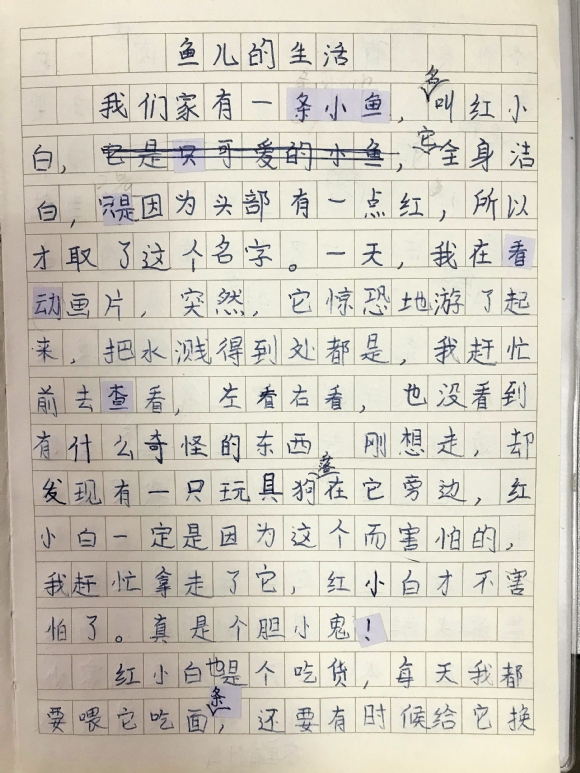 鱼儿的生活
我们家有一条小鱼，名叫红小
白，它是只可爱的小鱼，它全身洁
白，只是因为头部有一点红，所以
才取了这个名字。一天，我在看
动画片，突然，它惊恐地游了起
来，把水溅得到处都是，我赶忙
前去查看，左看右看，也没看到
有什么奇怪的东西 刚想走，却
发现有一只玩具狗在它旁边，红
小白一定是因为这个而害怕的，
我赶忙拿走了它，红小白才不害
怕了。真是个胆小鬼！
红小白也是个吃货，每天我都
要喂它吃面条，还要有时候给它换